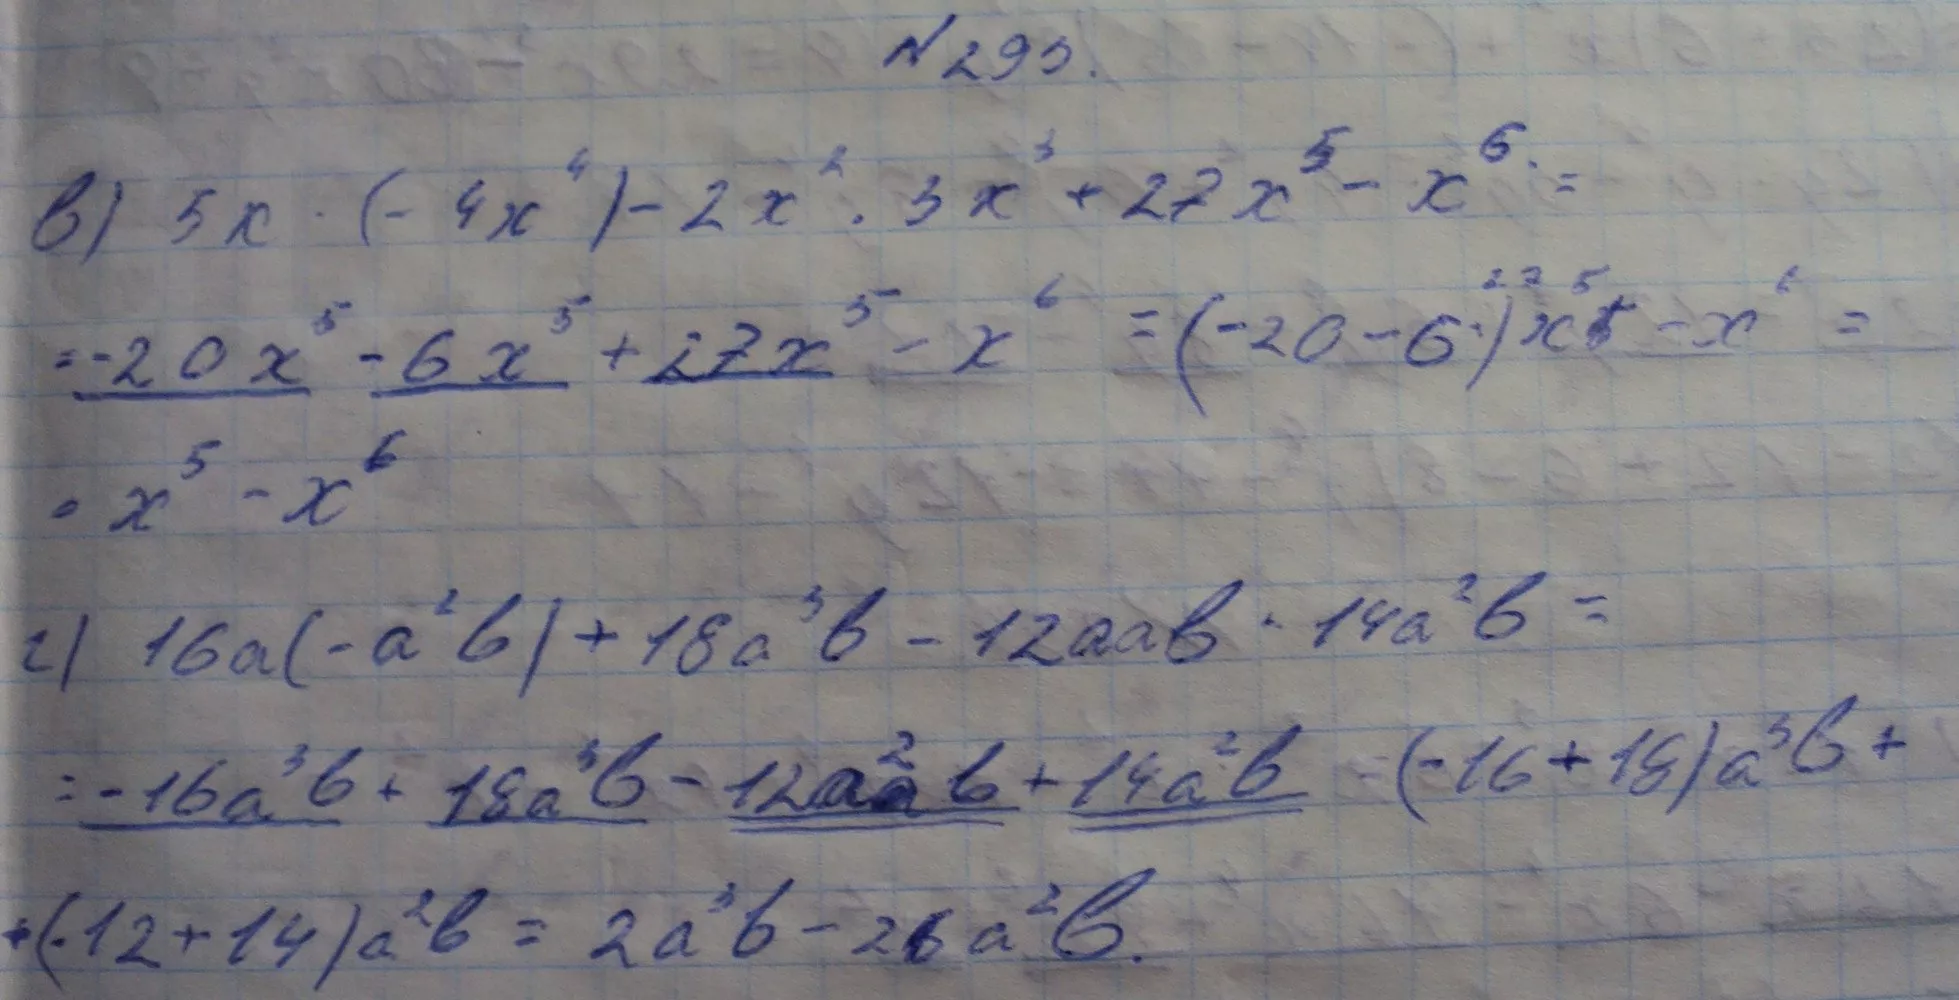 №295.
в) 5x · (-4x⁴) - 2x² · 3x³ + 27x⁵ - x⁶ =
= -20x⁵ - 6x⁵ + 27x⁵ - x⁶ = (-20 - 6 + 27)x⁵ - x⁶ =
= x⁵ - x⁶
г) 16a(-a²b) + 18a³b - 12aab - 14a²b =
= -16a³b + 18a³b - 12a²b + 14a²b = (-16 + 18)a³b +
+ (-12 + 14)a²b = 2a³b - 26a²b.